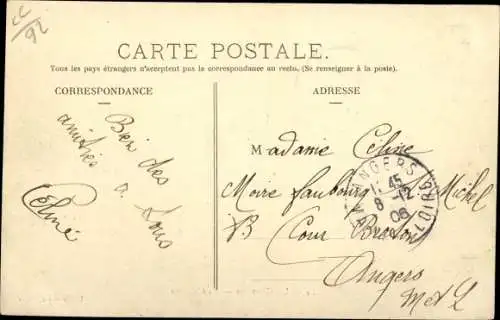 CC
92
CARTE POSTALE.
Tous les pays étrangers n'acceptent pas la correspondance au recto. (Se renseigner à la poste).
CORRESPONDANCE
ADRESSE
Bien des
amitiés
a tous
Céline
Madame Céline
Moire faubourg St Michel
Cour Breton
Angers
M et L
ANGERS
1 45
8 -12
06